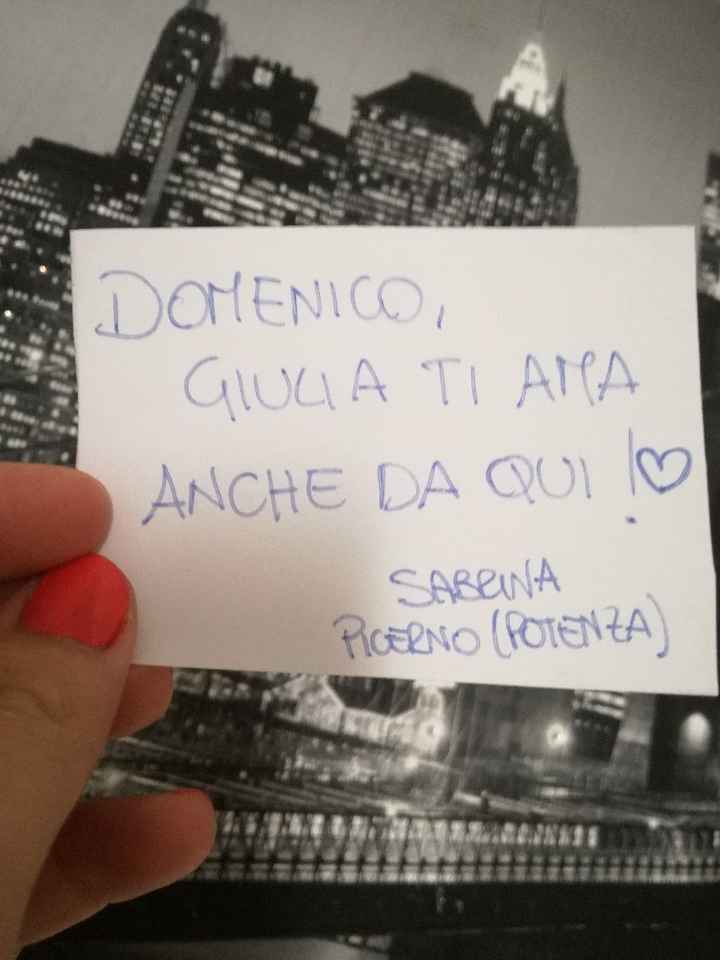 DOMENICO,
GIULIA TI AMA
ANCHE DA QUI !♡
SABRINA
PICERNO (POTENZA)